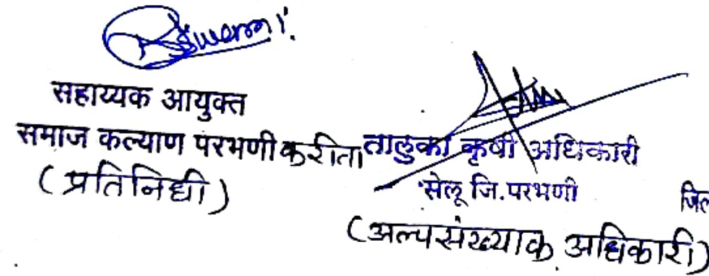 सहाय्यक आयुक्त
समाज कल्याण परभणी करीता
(प्रतिनिधी)
तालुका कृषी अधिकारी
सेलू जि.परभणी
(अल्पसंख्याक अधिकारी)